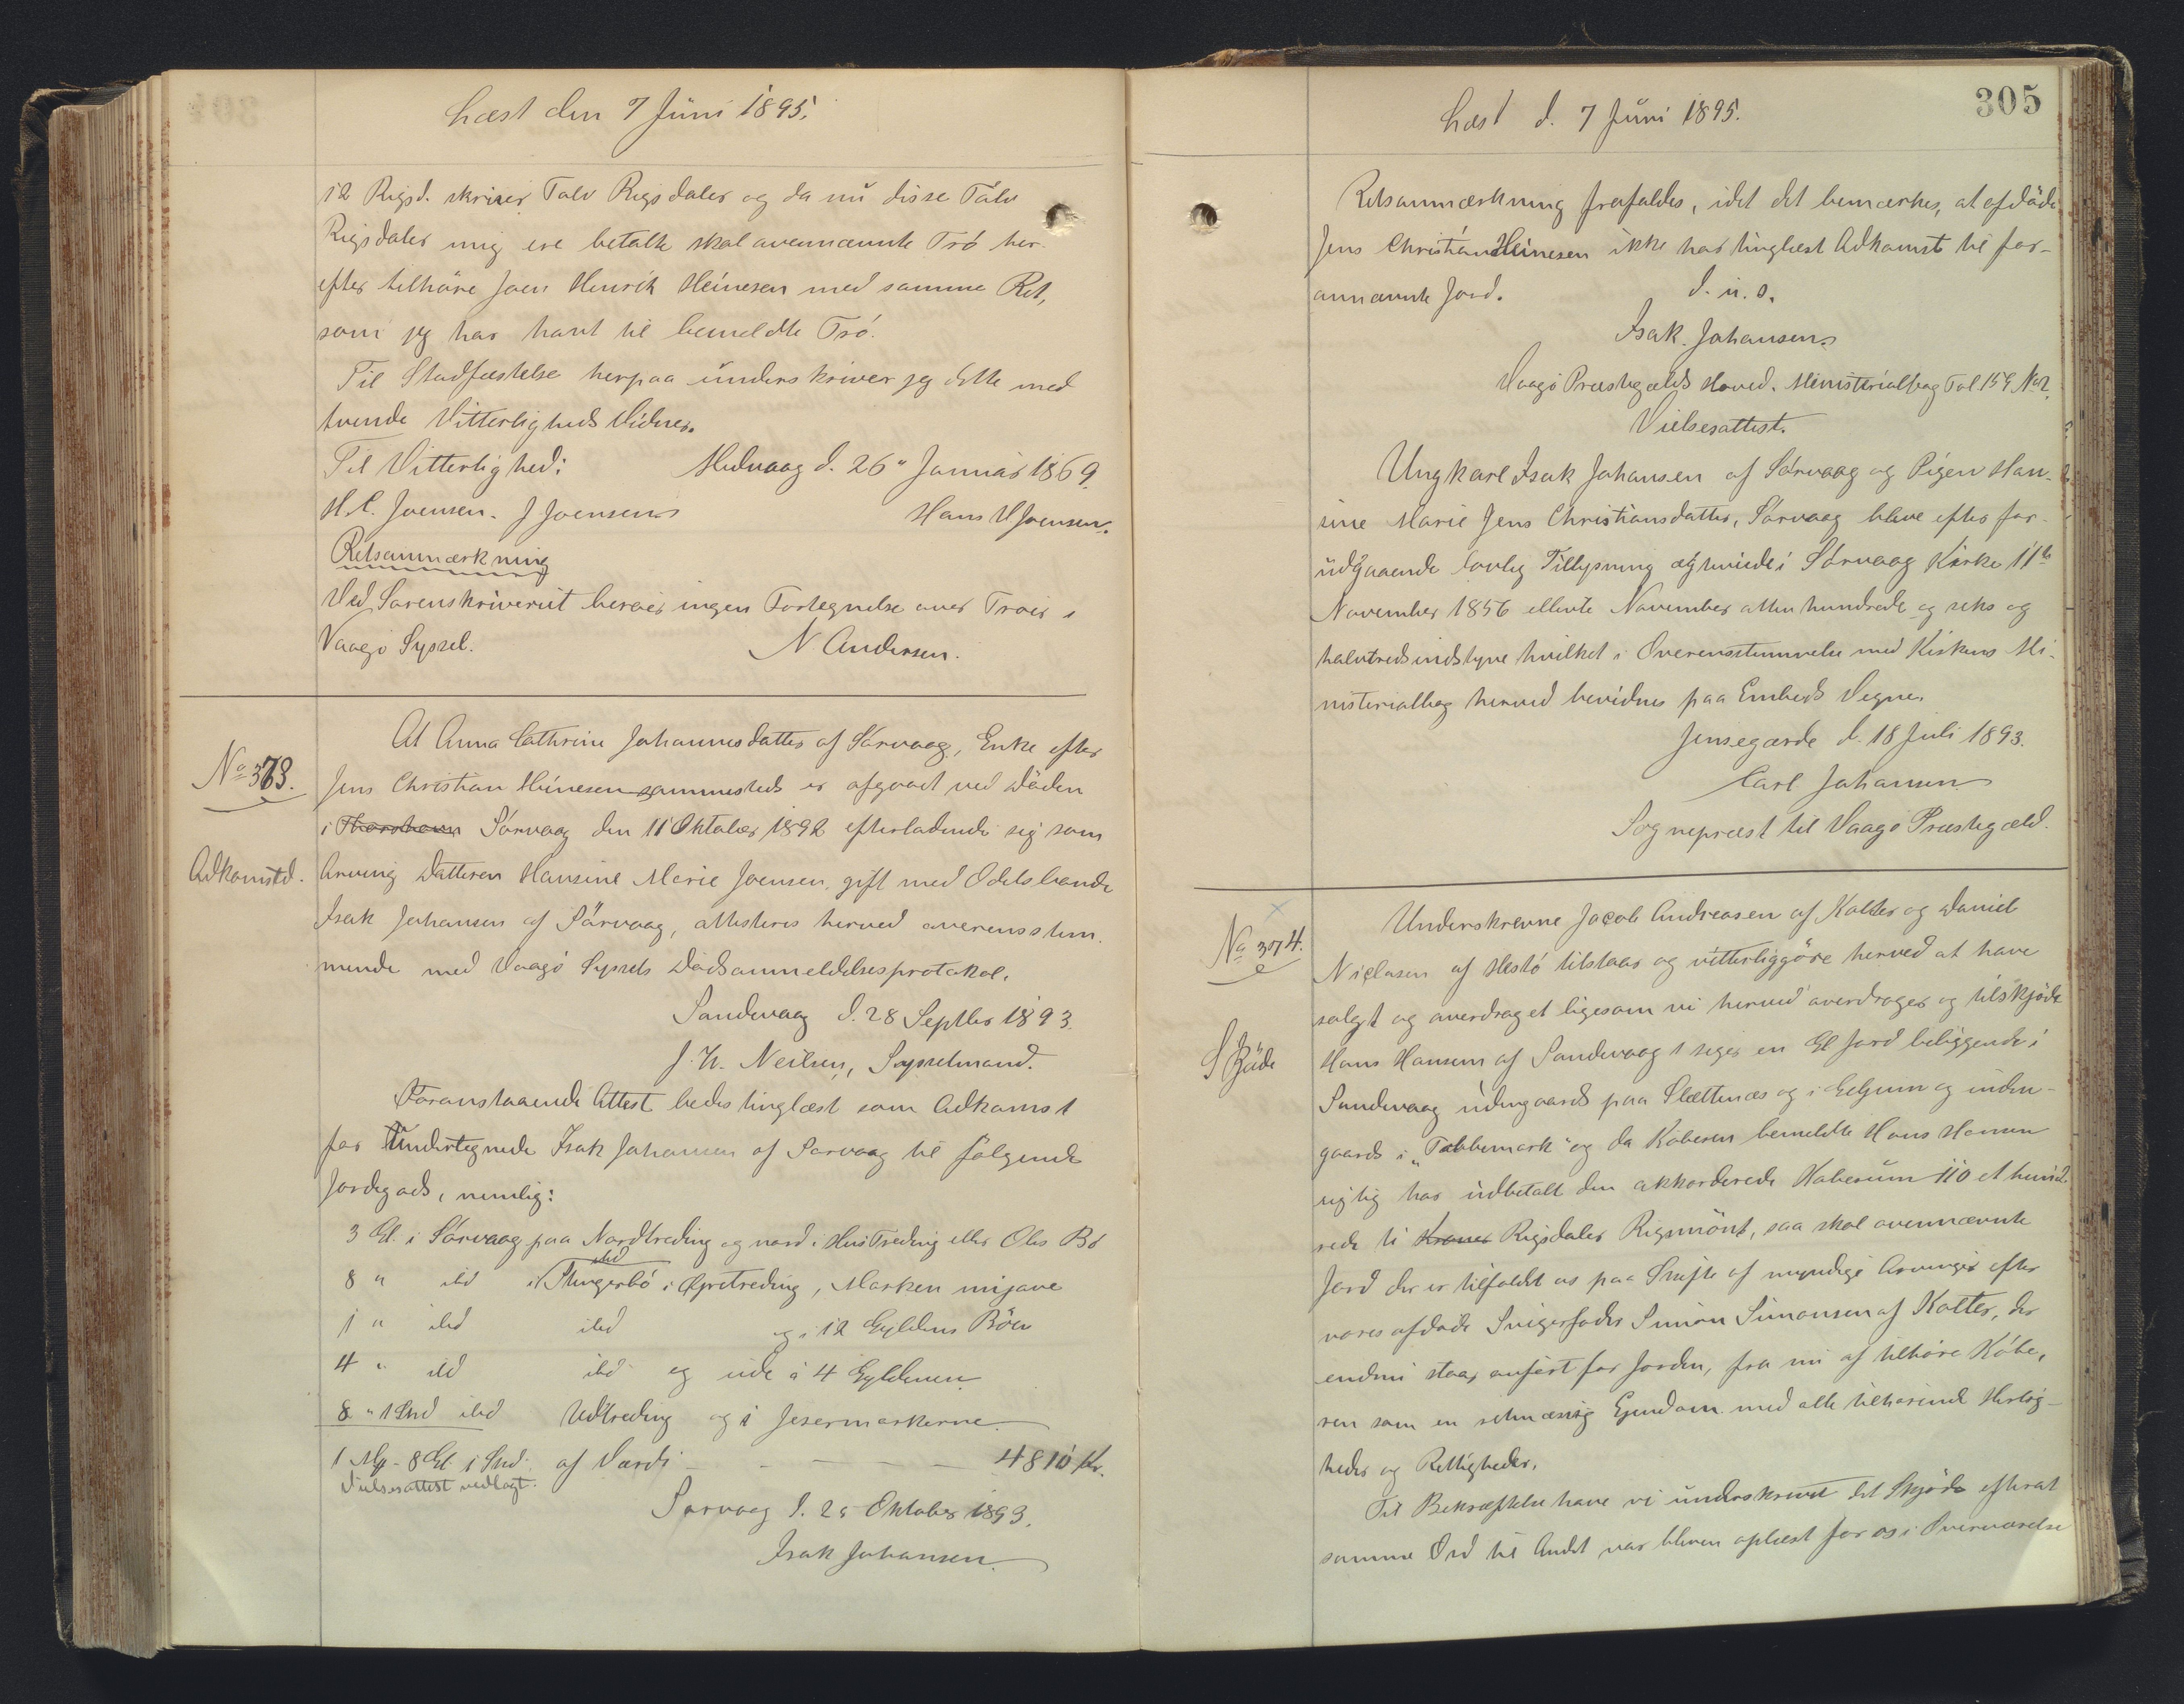 Læst den 7 Juni 1895.
12 Rigsd. skriver Tolv Rigsdaler og da nu disse Tolv
Rigsdaler mig ere betalte skal ovennævnte Tró her-
efter tilhöre Joen Henrik Heinesen med samme Ret,
som jeg har havt til bemeldte Tró.
Til Stadfæstelse herpaa underskriver jeg dette med
tvende Vitterligheds Vidner.
Til Vitterlighed:
Midvaag d. 26" Januar 1869.
H.C. Joensen. J Joensen
Hans Joensen.
Retsanmærkning
Ved Sorenskriveriet beroer ingen Fortegnelse over Tróer i
Vaagö Syssel.
N. Andersen.
No 373.
Adkomstd.
At Anna Cathrine Johannesdatter af Sörvaag, Enke efter
Jens Christian Heinesen sammesteds er afgaaet ved Döden
i Thorshavn Sörvaag den 11 Oktober 1892 efterladende sig som
Arving Datteren Hansine Marie Joensen, gift med Odelsbonde
Isak Johansen af Sörvaag, attesteres herved overensstem-
mende med Vaagö Syssels Dödsanmeldelsesprotokol.
Sandevaag d. 28 Septbr 1893.
J. H. Neilsen, Sysselmand.
Foranstaaende Attest bedes tinglæst som Adkomst
for Undertegnede Isak Johansen af Sörvaag til fölgende
Jordegods, nemlig:
3 Gl. i Sörvaag paa Nordtreding og nord i HusTreding eller Oles Bö
8 " ibd i ibd i Öpretreding, Marken
1 " ibd ibd og i 12 Gyldens Böen
4 " ibd ibd og ude à 4 Gylden
8 " 1 Sknd ibd Udtreding og i
1 Mk - 8 Gl. 1 Sknd. af Værdi - - - 4810 Kr.
Vielsesattest vedlagt.
Sörvaag d. 25 Oktober 1893.
Isak Johansen.
305
Læst d. 7 Juni 1895.
Retsanmærkning frafaldes, idet det bemærkes, at afdöde
Jens Christian Heinesen ikke har tinglæst Adkomst til for-
annævnte Jord.
d. u. s.
Isak Johansen.
Vaagö Præstegælds Hoved-Ministerialbog Fol 154 No 2.
Vielsesattest.
Ungkarl Isak Johansen af Sörvaag og Pigen Han-
sine Marie Jens Christiansdatter, Sörvaag bleve efter for-
udgaaende lovlig Tillysning ægteviede i Sörvaag Kirke 11te
November 1856 ellevte November atten hundrede og seks og
halvtredsindstyve hvilket i Overensstemmelse med Kirkens Mi-
nisterialbog herved bevidnes paa Embeds Vegne.
Jensegærde d. 18 Juli 1893.
Carl Johansen
Sognepræst til Vaagö Præstegæld.
No 374.
Skjöde
Underskrevne Jacob Andreasen af Kolter og Daniel
Niclasen af Hestö tilstaar og vitterliggöre herved at have
solgt og overdraget ligesom vi herved overdrager og tilskjöde
Hans Hansen af Sandevaag 1 siger en Gl Jord beliggende i
Sandevaag udengaards paa Slættenæs og i og inden-
gaards i "Tobbemark" og da Köberen bemeldte Hans Hansen
rigtig har udbetalt den akkorderede Köbesum 110 et hund-
rede ti Kroner Rigsdaler Rigsmönt, saa skal ovennævnte
Jord der er tilfaldet os paa Skifte af myndige Arvinger efter
vores afdöde Svigerfader Simon Simonsen af Kolter, der
endnu staar anfört for Jorden, fra nu af tilhöre Köbe-
ren som en retmæssig Ejendom med alle tilhörende Herlig-
heder og Rettigheder.
Til Bekræftelse have vi underskrevet det Skjöde efterat
samme Ord til Andet var bleven oplæst for os i Overværelse